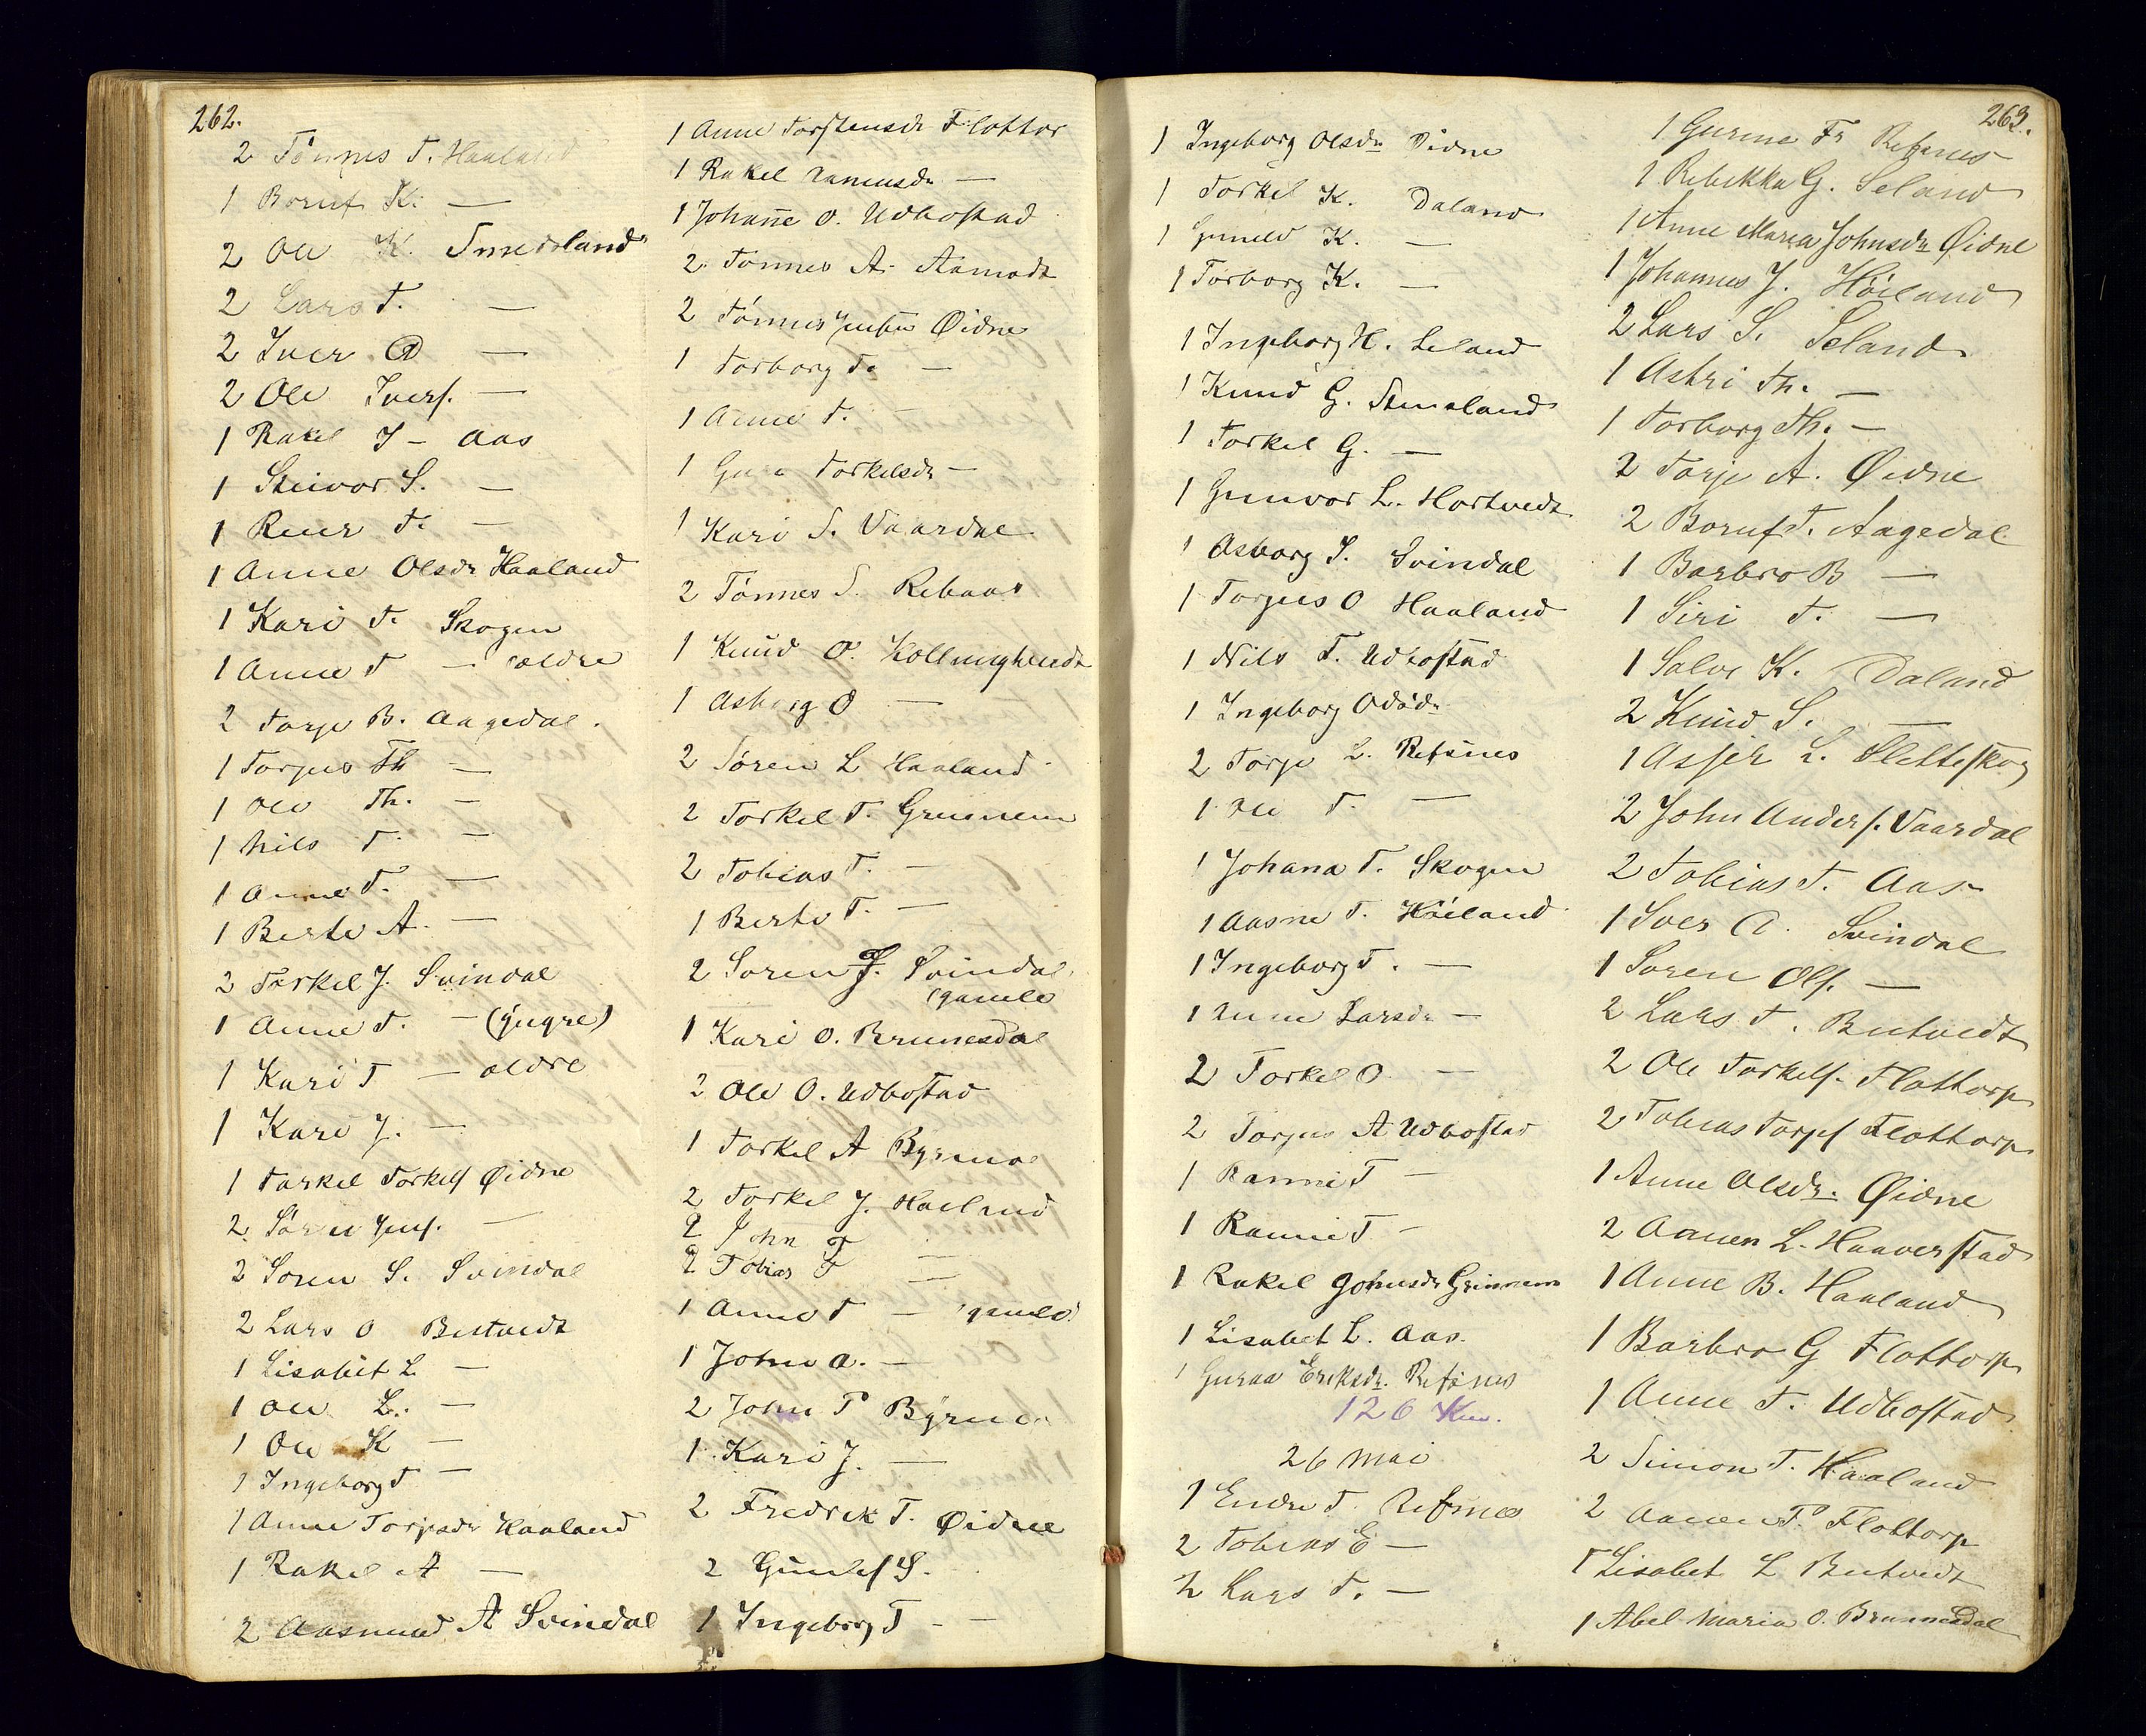 262.
2 Tönnes T. Haaland
1 Boruf K. —
2 Ole K. Smedsland
2 Lars T. —
2 Iver A —
2 Ole Ivers. —
1 Rakel I — Aas
1 Steivor S. —
1 Reier T. —
1 Anne Olsdr Haaland
1 Kari T. Skogen
1 Anne T — ældre
2 Torje B. Aagedal.
1 Torjus Th —
1 Ole Th. —
1 Nils T. —
1 Anne T. —
1 Berte A. —
2 Torkel J. Svindal
1 Anne T. — (yngre)
1 Kari T — ældre
1 Kari J. —
1 Torkel Torkels Øidne
2 Sören Jens. —
2 Sören S. Svindal
2 Lars O Bestvedt
1 Lisabet L —
1 Ole L. —
1 Ole K —
1 Ingeborg T —
1 Anne Torjusdr Haaland
1 Rakel A —
2 Aasmund A Svindal
1 Anne Torstensdr Flottor
1 Rakel Aanensdr —
1 Johanne O. Udbostad
2 Tönnes A. Aamodt
2 Tönnes Jensen Øidne
1 Torborg T. —
1 Anne T. —
1 Guro Torkelsdr —
1 Kari S. Vaardal
2 Tönnes S. Rebaas
1 Knud O. Kollungtvedt
1 Asborg O —
2 Sören L Haaland
2 Torkel T. Grunnem
2 Tobias T. —
1 Berte T. —
2 Soren J. Svindal
(gamle
1 Kari O. Brunesdal
2 Ole O. Udbostad
1 Torkel A Byrmo
2 Torkel J. Hoiland
2 John T —
2 Tobias T —
1 Anne T — (gamle)
1 John A. —
2 John P Byrmo
1 Kari J. —
2 Fredrik T. Øidne
2 Gunlef S.
1 Ingeborg T —
263.
1 Ingeborg Olsdr Öidne
1 Torkel K. Daland
1 Guneld K. —
1 Torborg K. —
1 Ingeborg H. Leland
1 Knud G. Stensland
1 Torkel G. —
1 Gunvor L. Hortvedt
1 Asborg S. Svindal
1 Torjus O Haaland
1 Nils T. Udbostad
1 Ingeborg Odsdr
2 Torje L. Refsnes
1 Ole T. —
1 Johana T. Skogen
1 Aasne T. Höiland
1 Ingeborg T. —
1 Anne Larsdr —
2 Torkel O —
2 Torjus A Udbostad
1 Ranni T —
1 Ranni T —
1 Rakel Johnsdr Grinnem
1 Lisabet L. Aas.
1 Guraa Eriksdr. Refsnes
126 Km.
26 Mai
1 Endre T. Refsnes
2 Tobias E —
2 Lars T. —
1 Gurine Fr Refsnes
1 Rebekka G. Seland
1 Anne Maria Johnsdr Øidne
1 Johannes J. Höiland
2 Lars S. Seland
1 Astri Th. —
1 Torborg Th. —
2 Torje A. Øidne
2 Boruf T. Aagedal
1 Barbro B —
1 Siri T. —
1 Salve K. Daland
2 Knud S. —
1 Assjer L. Sletteskog
2 John Anders. Vaardal
2 Tobias T. Aas
1 Iver A. Svindal
1 Soren Ols. —
2 Lars T. Bestvedt
2 Ole Torkels. Flottorp
2 Tobias Torjes Flottorp
1 Anne Olsdr. Øidne
2 Aanen L. Haaverstad
1 Anne B. Haaland
1 Barbro G Flottorp
1 Anne T. Udbostad
2 Simon T. Haaland
2 Aanen T. Flottorp
1 Lisabet L Bestvedt
1 Abel Maria O. Brunnesdal